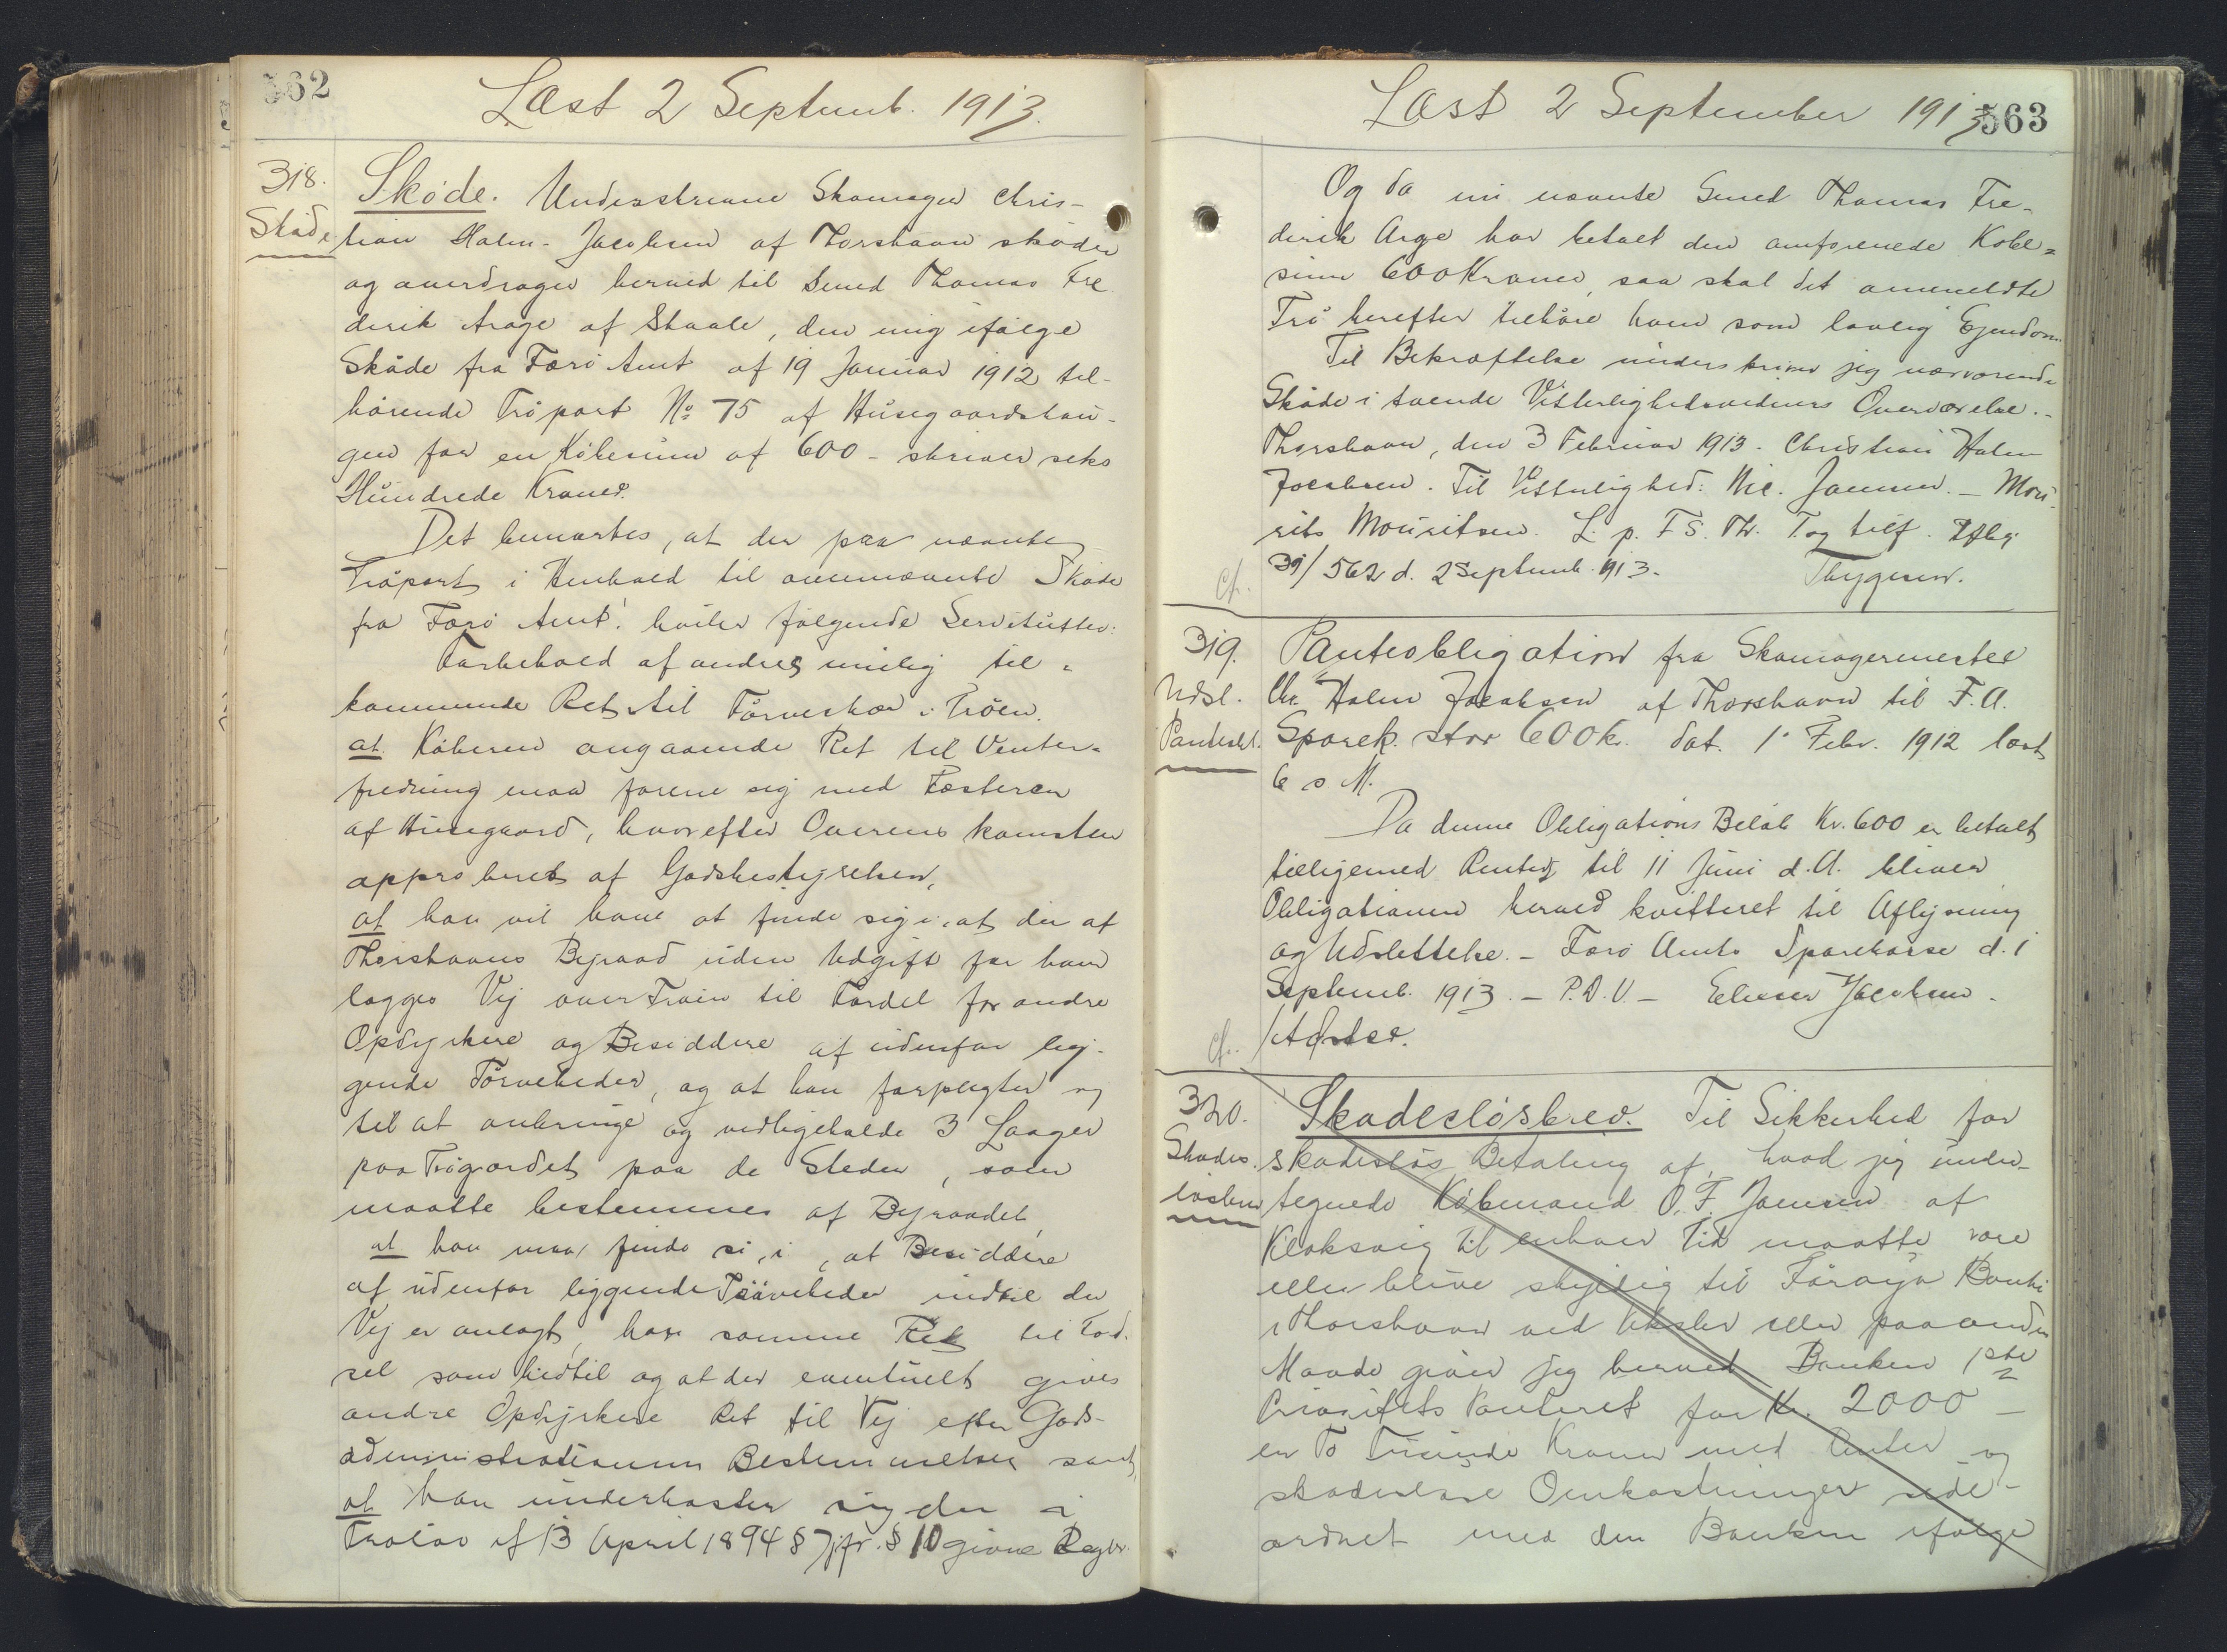 562
Læst 2 Septemb. 1913.
318.
Skøde
Skøde. Underskrevne Skomager Chris-
tian Holm-Jacobsen af Thorshavn skøder
og overdrager herved til Smed Thomas Fre
derik Arge af Skaale, den mig ifølge
Skøde fra Færø Amt af 19 Januar 1912 til-
hørende Trøpart No 75 af Husegaardshau-
gen for en Købesum af 600 - skriver seks
Hundrede Kroner.
Det bemærkes, at der paa nævnte
Trøpart i Henhold til ovennævnte Skøde
fra Færø Amt hviler følgende Servitutter:
Forbehold af andres mulig til-
kommende Ret til Tørveskær i Trøen.
at Køberen angaaende Ret til Vinter-
fredning maa forene sig med Fæsteren
af Husegaard, hvorefter Overenskomsten
approberet af Godsbestyrelsen,
at han vil have at finde sig i, at der af
Thorshavns Byraad uden Udgift for ham
lægges Vej over Trøen til Fordel for andre
Opdyrkere og Besiddere af udenfor lig-
gende Tørveheder, og at han forpligter sig
til at anbringe og vedligeholde 3 Laager
paa Trøgærdet paa de Steder, som
maatte bestemmes af Byraadet,
at han maa finde sig i, at Besiddere
af udenfor liggende Tørveheder indtil den
Vej er anlagt, have samme Ret til Færd-
sel som hidtil og at der eventuelt gives
andre Opdyrkere Ret til Vej efter Gods-
administrationens Bestemmelser samt
at han underkaster sig den i
Trølov af 13 April 1894 § 7 jfr. § 10 givne Regler.
Læst 2 September 1913
563
Og da nu nævnte Smed Thomas Fre-
derik Arge har betalt den omførmeldte Købe-
sum 600 Kroner, saa skal det ommeldte
Trø herefter tilhøre ham som lovlig Ejendom.
Til Bekræftelse underskriver jeg nærværende
Skøde i tvende Vitterlighedsvidners Overværelse.-
Thorshavn, den 3 Februar 1913. Christian Holm
Jacobsen. Til Vitterlighed: Nic. Joensen. - Mou-
rits Mouritsen. L. p. F S. Th. T og tilf.
39/562 d. 2 Septemb. 1913.
Thygesen.
Cf.
319.
Udsl.
Panteobl.
Panteobligation fra Skomagermester
Chr. Holm Jacobsen af Thorshavn til F.A.
Sparek. stor 600 Kr. dat. 1 Febr. 1912 læst
6 s M.
Da denne Obligations Beløb Kr. 600 er betalt
tilligemed Renter til 11 Juni d.A. bliver
Obligationen herved kvitteret til Aflysning
og Udslettelse. - Færø Amts Sparekasse d. 1
Septemb. 1913. - P.D.V. - Elieser Jacobsen.
Cf.
320.
Skades-
løsbrev
Skadesløsbrev. Til Sikkerhed for
skadesløs Betaling af, hvad jeg under-
tegnede Købmand O. F. Joensen af
Klaksvig til enhver Tid maatte være
eller blive skyldig til Føroya Banki
i Thorshavn ved Veksler eller paa anden
Maade giver jeg herved Banken 1ste
Prioritets Panteret for Kr. 2000 -
er To Tusinde Kroner med Renter og
skadesløse Omkostninger
ordnet med den Banken ifølge